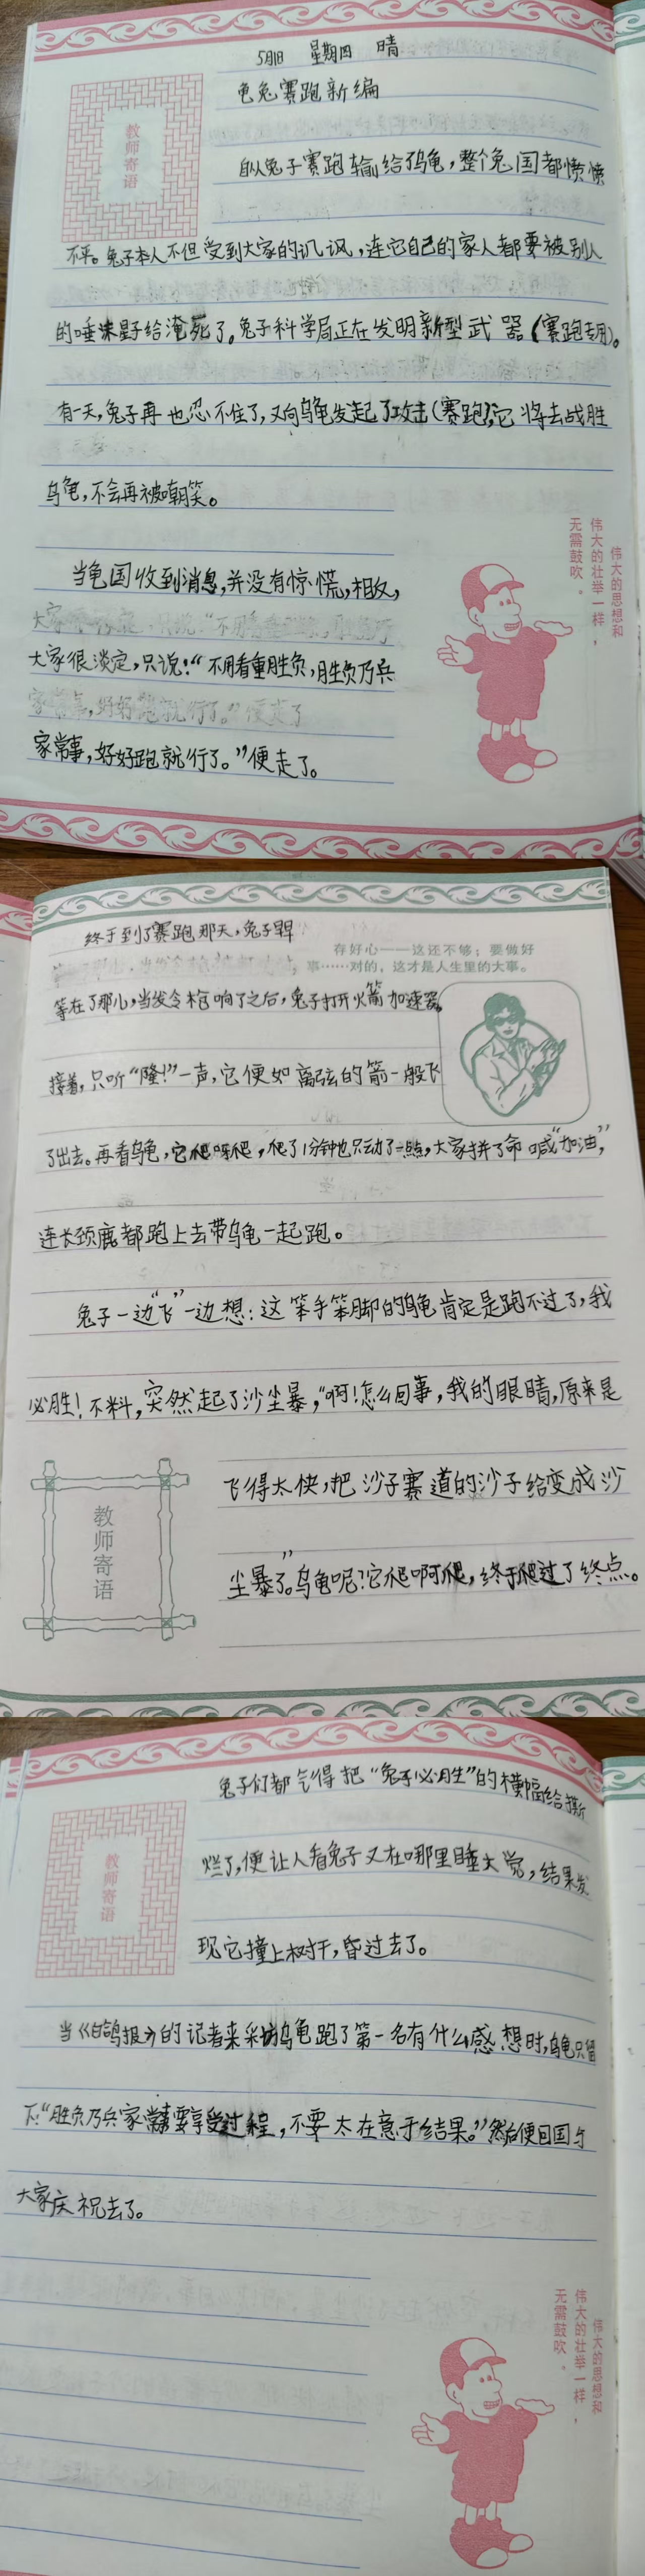 5月1日 星期四 晴
龟兔赛跑新编
教师寄语
自从兔子赛跑输给乌龟，整个兔国都愤愤
不平。兔子本人不但受到大家的讥讽，连它自己的家人都要被别人
的唾沫星子给淹死了。兔子科学局正在发明新型武器（赛跑专用）。
有一天，兔子再也忍不住了，又向乌龟发起了攻击（赛跑），它将去战胜
乌龟，不会再被嘲笑。
当龟国收到消息，并没有惊慌，相反，
大家很淡定，只说：“不用看重胜负，胜负乃兵
家常事，好好跑就行了。”便走了。
伟大的思想和
伟大的壮举一样，
无需鼓吹。
终于到了赛跑那天，兔子早
存好心——这还不够；要做好
事……对的，这才是人生里的大事。
等在了那儿，当发令枪响了之后，兔子打开火箭加速器，
接着，只听“隆！”一声，它便如离弦的箭一般飞
了出去。再看乌龟，它爬呀爬，爬了1分钟也只动了一点点，大家拼了命喊“加油”，
连长颈鹿都跑上去带乌龟一起跑。
兔子一边“飞”一边想：这笨手笨脚的乌龟肯定是跑不过了，我
必胜！不料，突然起了沙尘暴，“啊！怎么回事，我的眼睛，原来是
飞得太快，把沙子赛道的沙子给变成沙
尘暴了。”乌龟呢？它爬啊爬，终于爬过了终点。
教师寄语
兔子们都气得把“兔子必胜”的横幅给撕
烂了，便让人看兔子又在哪里睡大觉，结果发
现它撞上树干，昏过去了。
教师寄语
当《白鸽报》的记者来采访乌龟跑了第一名有什么感想时，乌龟只留
下：“胜负乃兵家常事，要享受过程，不要太在意于结果。”然后便回国与
大家庆祝去了。
伟大的思想和
伟大的壮举一样，
无需鼓吹。